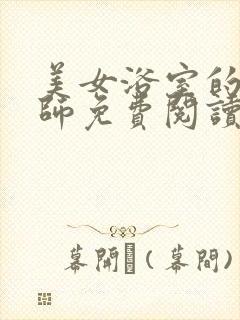 美女浴室的
師免費閱讀
幕開(幕間)